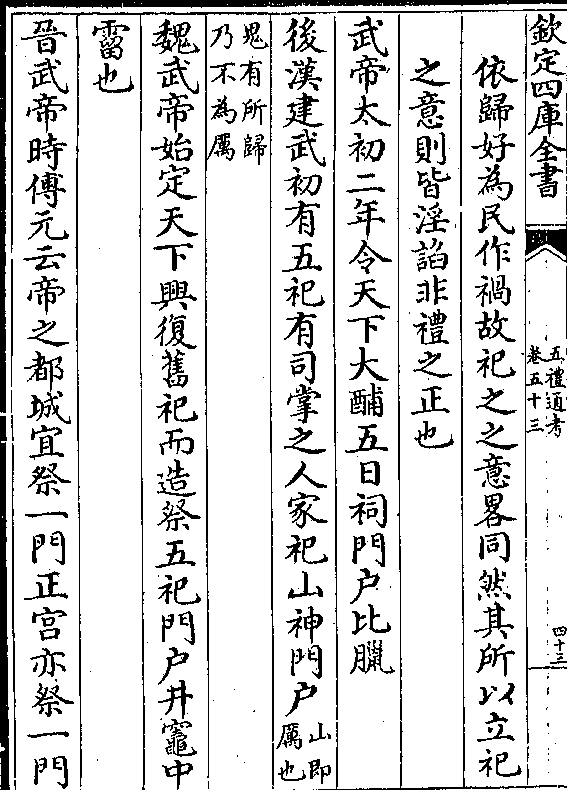 欽定四庫全書
五禮通考
卷五十三
四十三
依歸好為民作禍故祀之之意畧同然其所以立祀
之意則皆淫謟非禮之正也
武帝太初二年令天下大酺五日祠門户比臘
後漢建武初有五祀有司掌之人家祀山神門户山即
厲也
鬼有所歸
乃不為厲
魏武帝始定天下興復舊祀而造祭五祀門户井竈中
霤也
晉武帝時傅元云帝之都城宜祭一門正宫亦祭一門